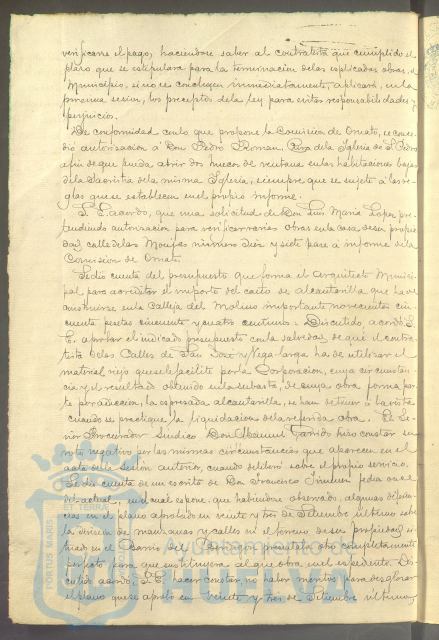 verificarse el pago, haciendose saber al contratista que cumplido el
plazo que se estipulara para la terminacion de las esplicadas obras, el
Municipio, si no se concluyen inmediatamente, aplicará, en la
procsima sesion, los preceptos de la ley para evitar responsabilidades y
perjuicios.
De conformidad con lo que propone la Comision de Ornato, se conce-
dió autorizacion á Don Pedro Roman, Cura de la Iglesia de S. Pedro
a fin de que pueda abrir dos huecos de ventana en las habitaciones bajas
de la Sacristia de la misma Iglesia, siempre que se sujete á las re-
glas que se establecen en el propio informe.
S. E. acordó, que una solicitud de Don Luis Maria Lopez, pre-
tendiendo autorizacion para verificar varias obras en la casa de su propie-
dad calle de las Monjas número diez y siete pase á informe de la
Comision de Ornato.
Se dió cuenta del presupuesto que forma el Arquitecto Munici-
pal para acreditar el importe del caño de alcantarilla que ha de
construirse en la Calleja del Molino importante novecientas cin-
cuenta pesetas cincuenta y cuatro centimos: Discutido, acordó S.
E. aprobar el indicado presupuesto con la salvedad de que el contra-
tista de las Calles de San José y Vega-larga ha de utilizar el
material viejo que se le facilite por la Corporacion, cuya circunstan-
cia y el resultado obtenido en la subasta, de cuya obra forma par-
te por adiccion, la espresada alcantarilla, se han de tener á la vista
cuando se practique la liquidacion de la referida obra. El Se-
ñor Procurador Sindico Don Manuel Garrido hizo constar su
voto negativo por las mismas circunstancias que aparecen en el
acta de la sesion anterior, cuando deliberó sobre el propio servicio.
Se dió cuenta de un escrito de Don Francisco Jimenez fecha once
del actual, en el cual espone, que habiendose observado, algunas deficien-
cias en el plano aprobado en veinte y tres de Setiembre ultimo sobre
la division de manzanas y calles en el terreno de su propiedad si-
tuado en el Barrio del presenta otro completamente
perfecto para que sustituya al que obra en el espediente. Dis-
cutido acordó S. E. hacer constar, en valor meritos para desglosar
el plano que se aprobó en veinte y tres de Setiembre ultimo,
PORTUS MARIS
ET TERRÆ
Ayuntamiento de
HUELVA